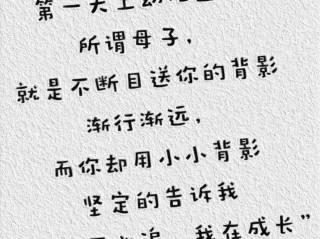 第一天上幼
所谓母子，
就是不断目送你的背影
渐行渐远，
而你却用小小背影
坚定的告诉我
追 我在成长”